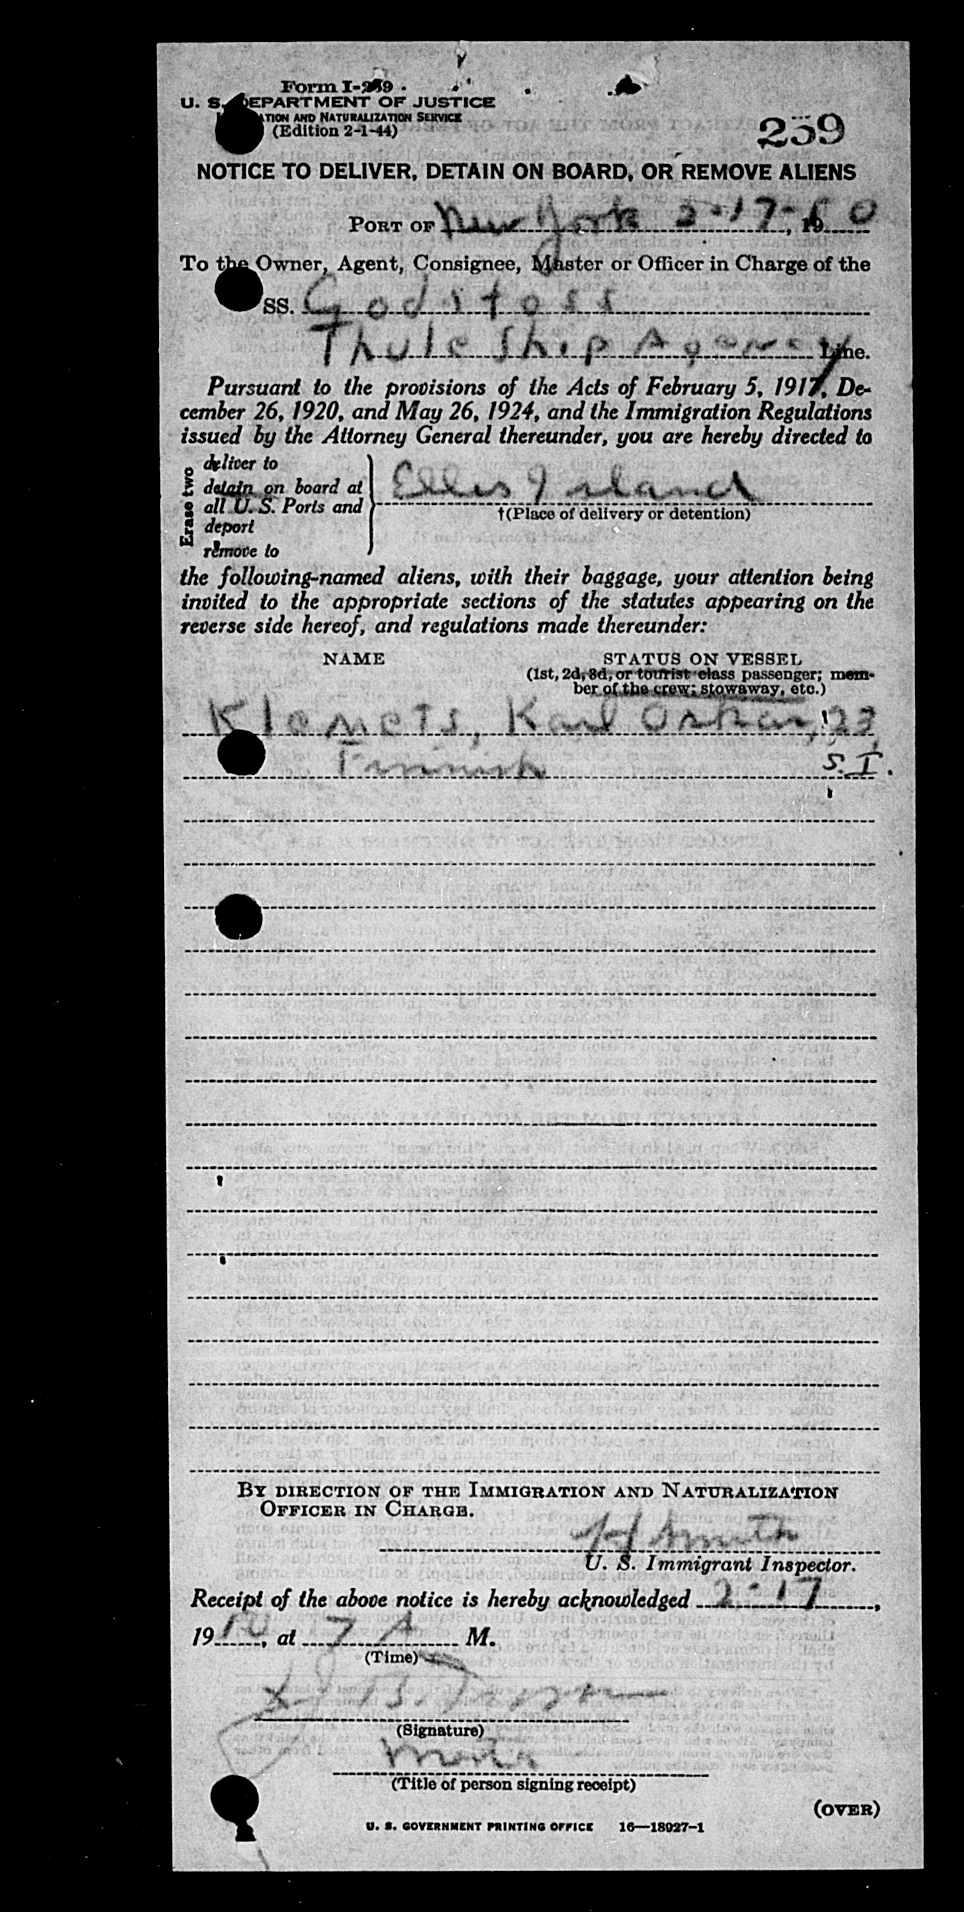 Form I-259
U. S. DEPARTMENT OF JUSTICE
ATION AND NATURALIZATION SERVICE
(Edition 2-1-44)
259
NOTICE TO DELIVER, DETAIN ON BOARD, OR REMOVE ALIENS
PORT OF New York 2-17-50, 19
To the Owner, Agent, Consignee, Master or Officer in Charge of the
SS. Godstoss
Thule Ship Agency Line.
Pursuant to the provisions of the Acts of February 5, 1917, De-
cember 26, 1920, and May 26, 1924, and the Immigration Regulations
issued by the Attorney General thereunder, you are hereby directed to
Erase two
deliver to
detain on board at
all U. S. Ports and
deport
remove to
Ellis Island
†(Place of delivery or detention)
the following-named aliens, with their baggage, your attention being
invited to the appropriate sections of the statutes appearing on the
reverse side hereof, and regulations made thereunder:
NAME
STATUS ON VESSEL
(1st, 2d, 3d, or tourist class passenger; mem-
ber of the crew; stowaway, etc.)
Klemets, Karl Oskar, 23,
Finnish S.I.
BY DIRECTION OF THE IMMIGRATION AND NATURALIZATION
OFFICER IN CHARGE.
H Smith
U. S. Immigrant Inspector.
Receipt of the above notice is hereby acknowledged 2-17,
1950, at 7 A M.
(Time)
(Signature)
(Title of person signing receipt)
(OVER)
U. S. GOVERNMENT PRINTING OFFICE 16—18927-1